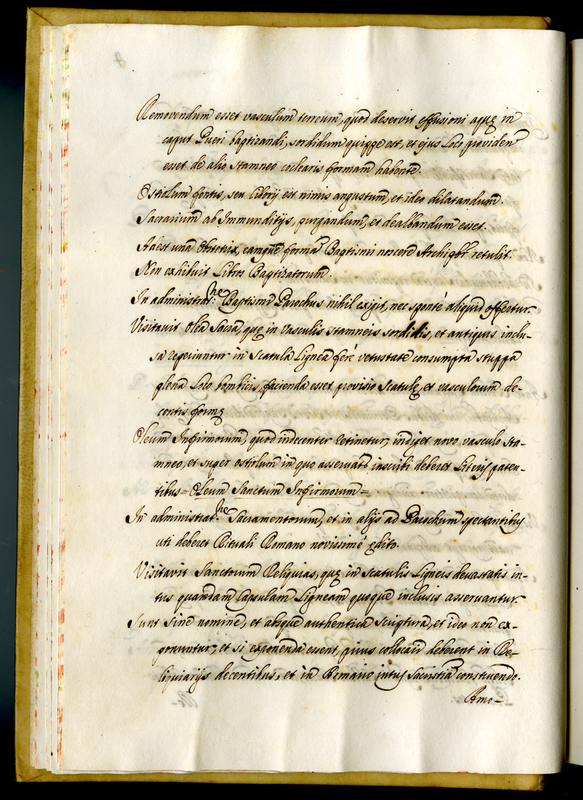 Removendum esset vasculum terreum, quod deservit effusioni aquę in
caput Pueri baptizandi, sordidum quippe est, et ejus loco providend
esset de alio stamneo coclearis formam habente.
Ostiolum fontis, seu Ciborij est nimis angustum, et ideo dilatandum.
Sacrarium ab Immunditijs, purgandum, et dealbandum esset.
Adest una Obstetrix, eamque formã Baptismi noscere Archipbr retulit.
Non exhibuit Libros Baptizatorum
In administrat:ne Baptismi Parochus nihil exigit, nec sponté aliquid offertur.
Visitavit Olea Sacra, quę in Vasculis stamneis sordidis, et antiquis inclu-
sa reperiuntur in Scatula Lignea feré vetustate consumpta stuppa
plena loco bombicis, facienda esset provisio Scatulę, et vasculorum de-
centis formę
Oleum Infirmorum, quod indecenter retinetur, indiget novo vasculo sta-
mneo, et super ostiolum in quo asservatr inscribi deberet Literis paten-
tibus = Oleum Sanctum Infirmorum =
In administrat:ne Sacramentorum, et in alijs ad Parochum spectantibus
uti deberet Rituali Romano novissimé edito.
Visitavit Sanctorum Reliquias, quę in scatulis Ligneis devastatis in-
tus quamdam Capsulam Ligneam quoque inclusis asservantur.
Sunt sine nomine, et absque authentica Scriptura, et ideo non ex-
ponuntur, et si exponendę essent, prius collocari deberent in Re-
liquiarijs decentibus, et in Armario intus Sacristiã construendo.
Amo-